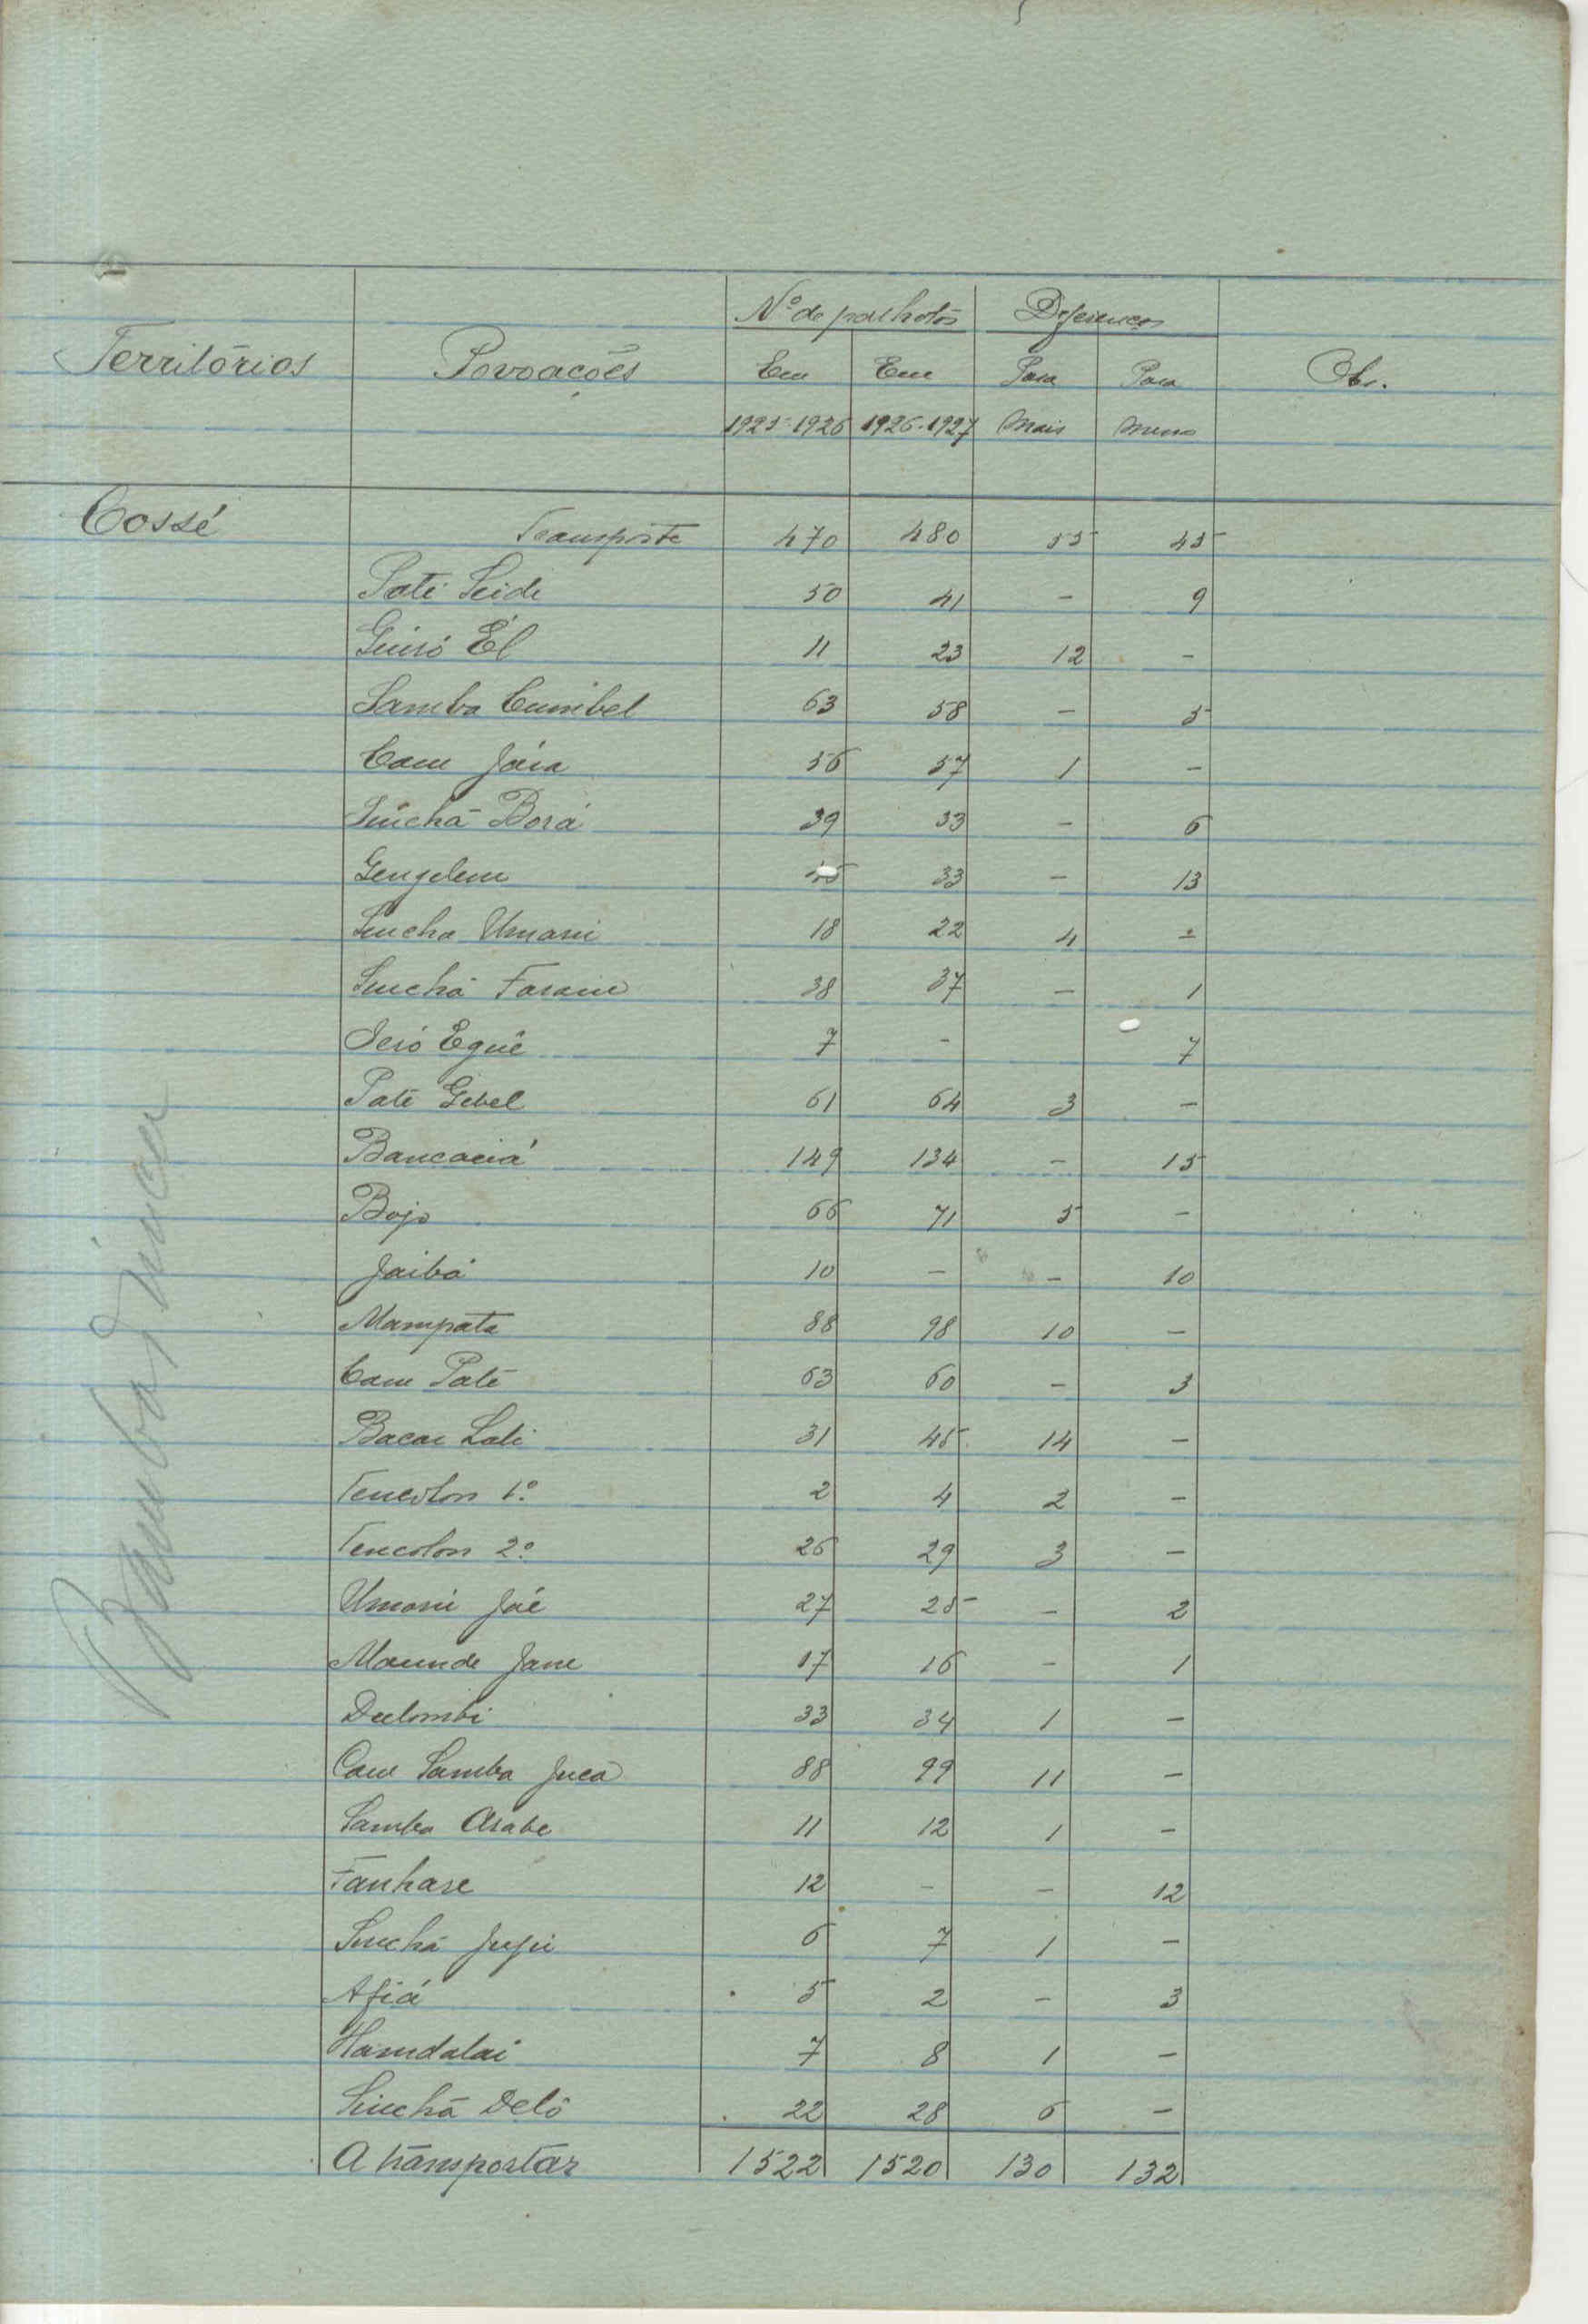 Nº de palhotas Diferenças
Territórios Povoações Em Em Para Para Obs.
1925-1926 1926-1927 Mais Menos
Cossé Transporte 470 480 55 45
Paté Seidi 50 41 - 9
Guiró Él 11 23 12 -
Samba Cumbel 63 58 - 5
Cam Jáia 56 57 1 -
Sinchã Borá 39 33 - 6
Gengelem 33 - 13
Sincha Umaru 18 22 4 -
Sinchã Farame 38 37 - 1
Egué 7 - 7
Paté Gibel 61 64 3 -
149 134 - 15
Bojo 66 71 5 -
Jaibá 10 - - 10
Mampata 88 98 10 -
Cam Paté 63 60 - 3
Bacar Lali 31 45 14 -
Tencolon 1º 2 4 2 -
Tencolon 2º 26 29 3 -
27 25 - 2
Maunde Jane 17 16 - 1
Dulombi 33 34 1 -
Cam Samba Jucá 88 99 11 -
Samba Arabe 11 12 1 -
Fanhare 12 - - 12
Sinchã 6 7 1 -
Afiá 5 2 - 3
Hamdalai 7 8 1 -
Sinchã Deló 22 28 6 -
A transportar 1522 1520 130 132
Bambadinca